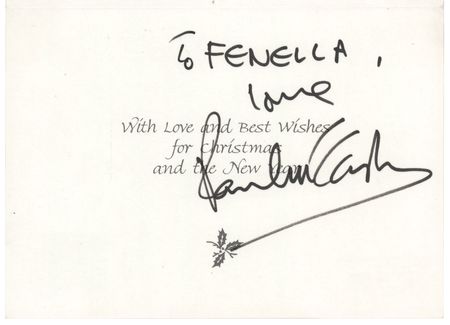 To FENELLA,
love
With Love and Best Wishes
for Christmas
and the New Year
Paul McCartney